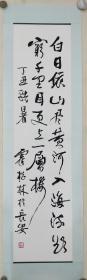 白日依山尽黄河入海流欲
穷千里目更上一层楼
丁丑酷暑
霍松林於长安